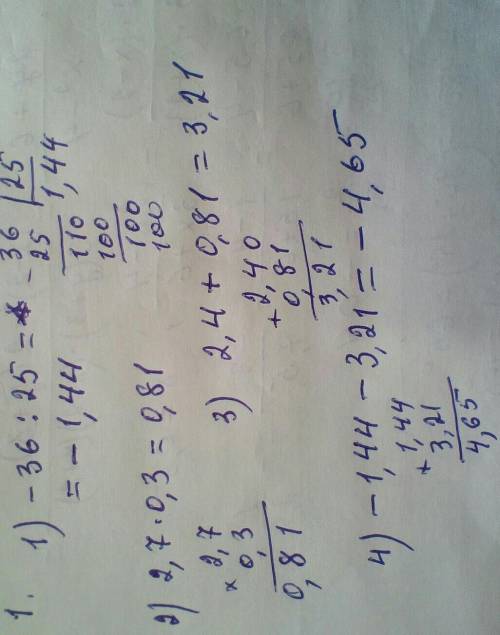 1.
1) -36 : 25 =
= -1,44
- 36 | 25
25 1,44
110
100
100
100
2) 2,7 · 0,3 = 0,81
× 2,7
0,3
0,81
3) 2,4 + 0,81 = 3,21
+ 2,40
0,81
3,21
4) -1,44 - 3,21 = -4,65
+ 1,44
3,21
4,65